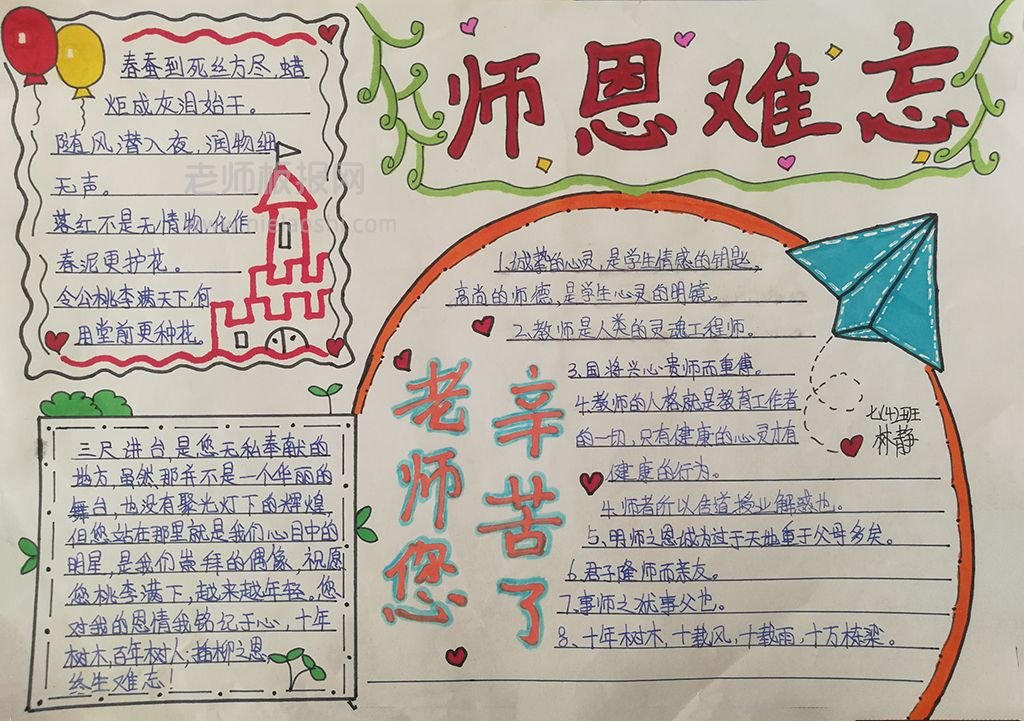 师恩难忘
春蚕到死丝方尽,蜡
炬成灰泪始干。
随风潜入夜,润物细
无声。
落红不是无情物,化作
春泥更护花。
令公桃李满天下,何
用堂前更种花。
老师板报网
三尺讲台,是您无私奉献的
地方,虽然那并不是一个华丽的
舞台,也没有聚光灯下的辉煌,
但您站在那里就是我们心目中的
明星,是我们崇拜的偶像,祝愿
您桃李满下,越来越年轻。您
对我的恩情我铭记于心,十年
树木,百年树人,插柳之恩,
终生难忘!
老师您
辛苦了
1.诚挚的心灵,是学生情感的钥匙,
高尚的师德,是学生心灵的明镜。
2.教师是人类的灵魂工程师。
3.国将兴心贵师而重傅。
4.教师的人格就是教育工作者
的一切,只有健康的心灵才有
健康的行为。
4.师者所以传道授业解惑也。
5、明师之恩诚为过于天地重于父母多矣。
6.君子隆师而亲友。
7.事师之犹事父也。
8、十年树木,十载风,十载雨,十万栋梁。
七(4)班
林静